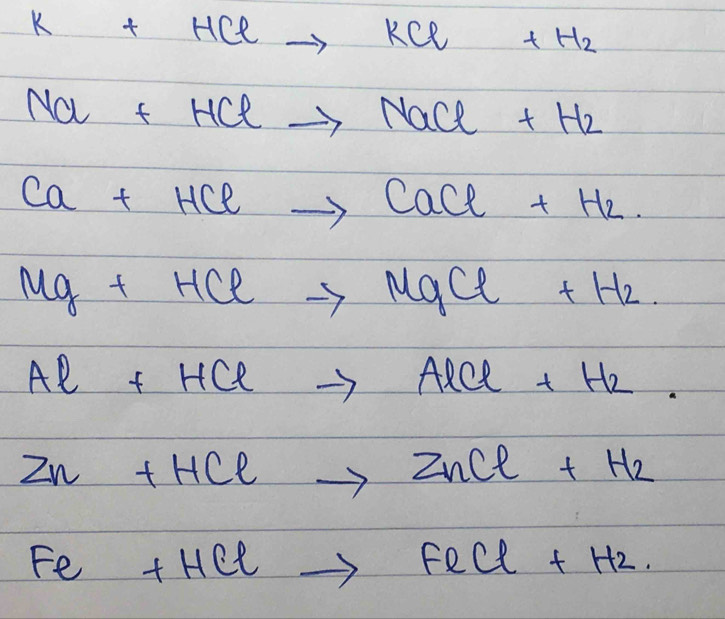 K + HCl → KCl + H2
Na + HCl → NaCl + H2
Ca + HCl → CaCl + H2.
Mg + HCl → MgCl + H2.
Al + HCl → AlCl + H2.
Zn + HCl → ZnCl + H2
Fe + HCl → FeCl + H2.